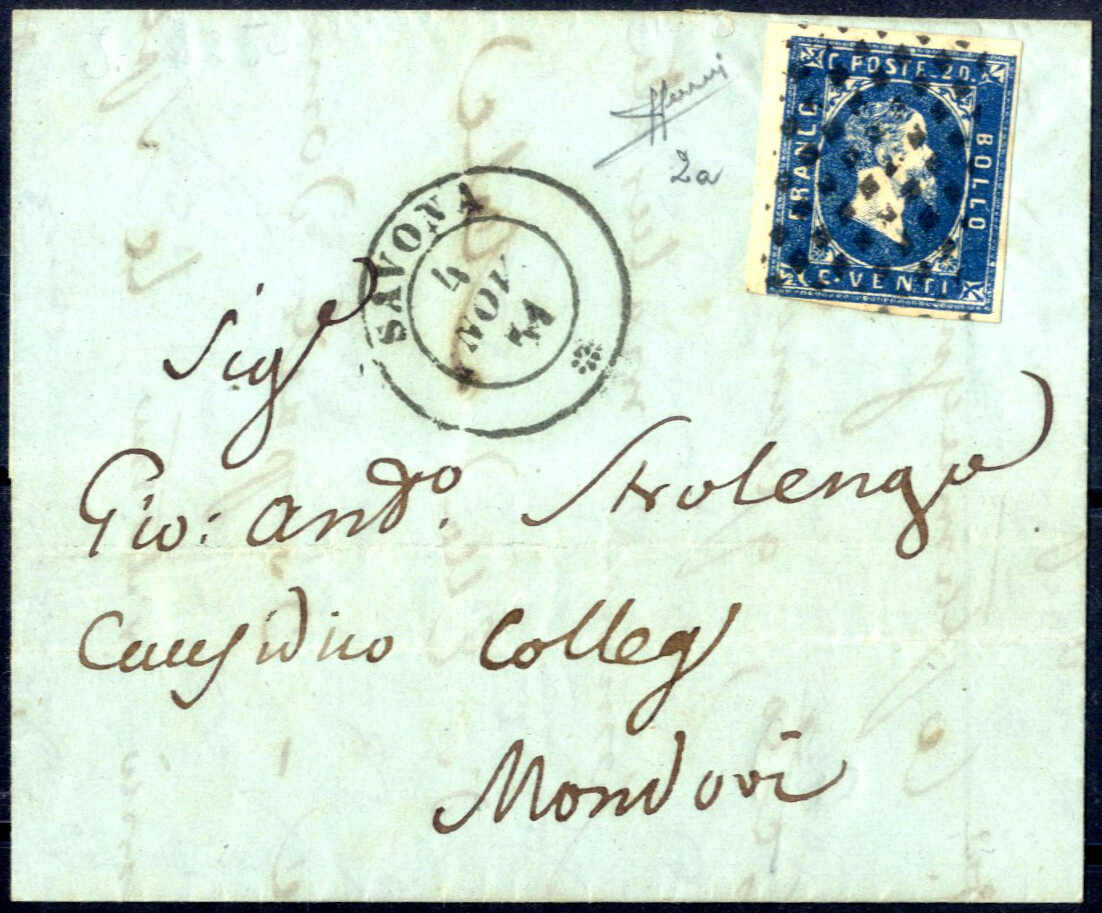 C. POSTE. 20.
FRANCO
BOLLO
C. VENTI
2a
SAVONA
4
NOV
51
Sigr
Gio: Ando. Strolengo
Causidico Colleg
Mondovi